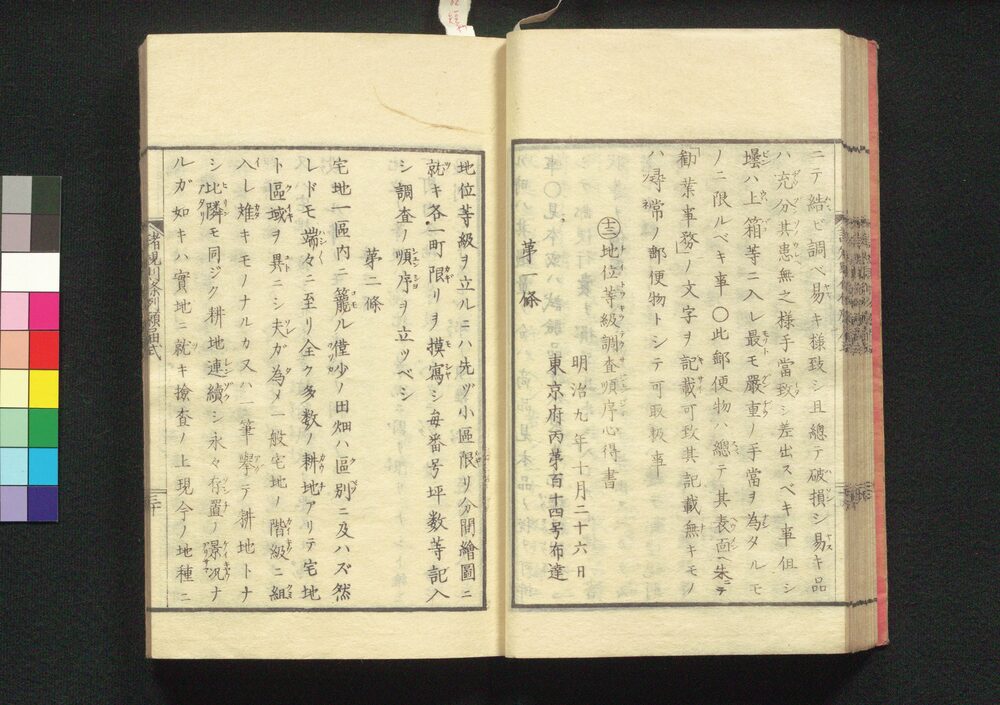 ニテ結ビ調ベ易キ様致シ且總テ破損シ易キ品
ハ充分其患無之様手當致シ差出スベキ事但シ
壜ハ上箱等ニ入レ最モ嚴重ノ手當ヲ為タルモ
ノニ限ルベキ事〇此郵便物ハ總テ其表面ヘ朱ニテ
「勸業事務」ノ文字ヲ記載可致其記載無キモノ
ハ尋常ノ郵便物トシテ可取扱事
明治九年十月二十六日
㊂地位等級調査順序心得書
東京府丙第百十四号布達
第一條
地位等級ヲ立ルニハ先ヅ小區限リ分間繪圖ニ
就キ各一町限リヲ摸寫シ毎番号坪数等記入
シ調査ノ順序ヲ立ツベシ
第二條
宅地一區内ニ籠ル僅少ノ田畑ハ區別ニ及ハズ然
レドモ端々ニ至リ全ク多数ノ耕地アリテ宅地
ト區域ヲ異ニシ夫ガ為メ一般宅地ノ階級ニ組
入レ難キモノナルカ又ハ一筆擧テ耕地トナ
シ比隣モ同ジク耕地連續シ永々存置ノ景況ナ
ルガ如キハ實地ニ就キ撿査ノ上現今ノ地種ニ
諸規則條列願届式
三十